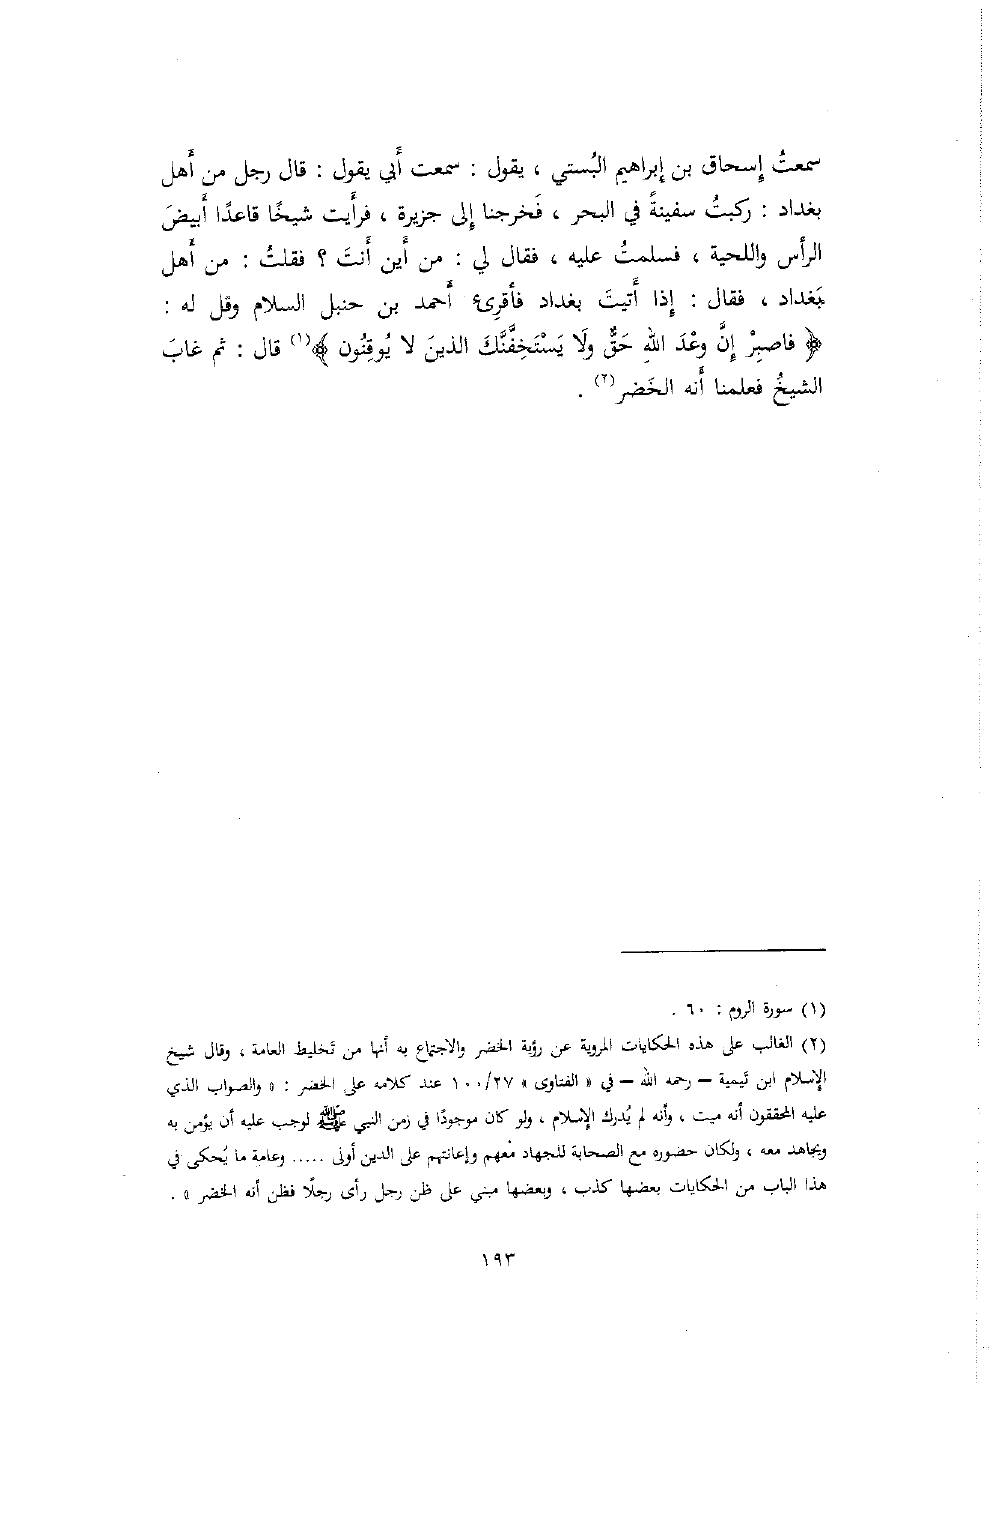 سمعتُ إسحاق بن إبراهيم البُستي ، يقول : سمعت أَبي يقول : قال رجل من أَهل
بغداد : ركبتُ سفينةً في البحر ، فَخرجنا إلى جزيرة ، فرأَيت شيخًا قاعدًا أَبيضَ
الرأس واللحية ، فسلمتُ عليه ، فقال لي : من أَين أَنتَ ؟ فقلتُ : من أَهل
بَغداد ، فقال : إذا أَتيتَ بغداد فأقرِىء أَحمد بن حنبل السلام وقل له :
﴿ فاصبِرْ إنَّ وعْدَ اللهِ حَقٌّ ولَا يَسْتَخِفَّنَّكَ الذينَ لا يُوقِنُون ﴾(١) قال : ثم غابَ
الشيخُ فعلمنا أَنه الخَضر(٢) .
(١) سورة الروم : ٦٠ .
(٢) الغالب على هذه الحكايات المروية عن رؤية الخضر والاجتماع به أنها من تخليط العامة ، وقال شيخ
الإسلام ابن تيمية – رحمه الله – في « الفتاوى » ١٠٠/٢٧ عند كلامه على الخضر : « والصواب الذي
عليه المحققون أنه ميت ، وأنه لم يُدرك الإسلام ، ولو كان موجودًا في زمن النبي ﷺ لوجب عليه أن يؤمن به
ويجاهد معه ، ولكان حضوره مع الصحابة للجهاد معهم وإعانتهم على الدين أولى ..... وعامة ما يُحكى في
هذا الباب من الحكايات بعضها كذب ، وبعضها مبني على ظن رجل رأى رجلًا فظن أنه الخضر » .
١٩٣